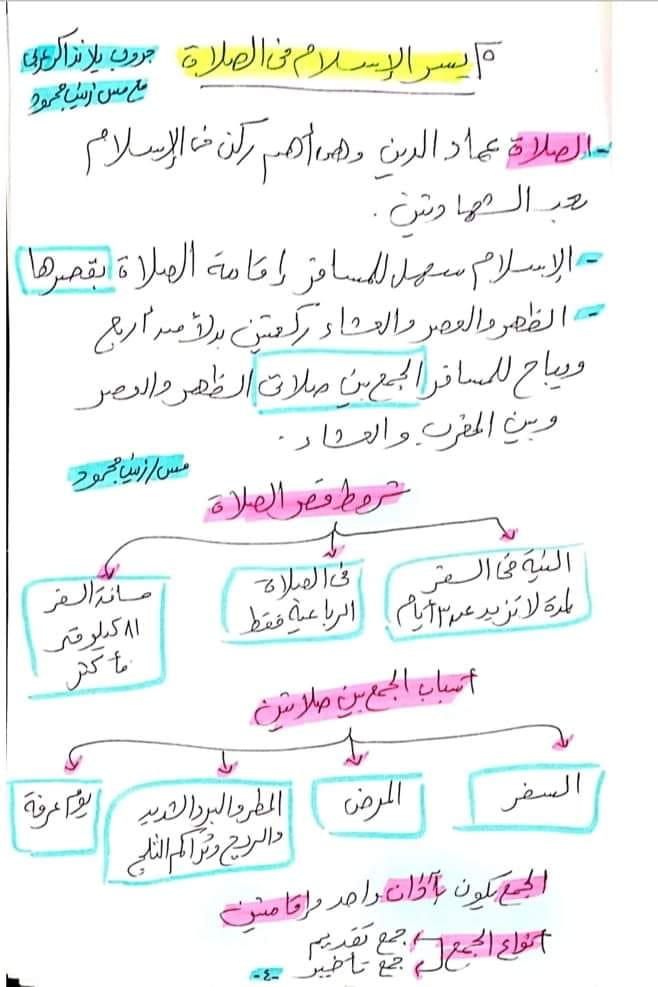 يسر الإسلام فى الصلاة
جروب يلا نذاكر عربى
مع مس زينب محمود
- الصلاة عماد الدين وهى أهم ركن فى الإسلام
بعد الشهادتين .
- الإسلام سهل للمسافر إقامة الصلاة بقصرها
- الظهر والعصر والعشاء ركعتين بدلاً من أربع
ويباح للمسافر الجمع بين صلاتى الظهر والعصر
وبين المغرب والعشاء .
مس/ زينب محمود
شروط قصر الصلاة
النية فى السفر
لمدة لا تزيد عن ٣ أيام
فى الصلاة
الرباعية فقط
مسافة السفر
٨١ كيلو متر
فأكثر
أسباب الجمع بين صلاتين
السفر
المرض
المطر والبرد الشديد
والريح وتراكم الثلج
يوم عرفة
الجمع يكون بآذان واحد وإقامتين
أنواع الجمع
جمع تقديم
جمع تأخير
-٤-